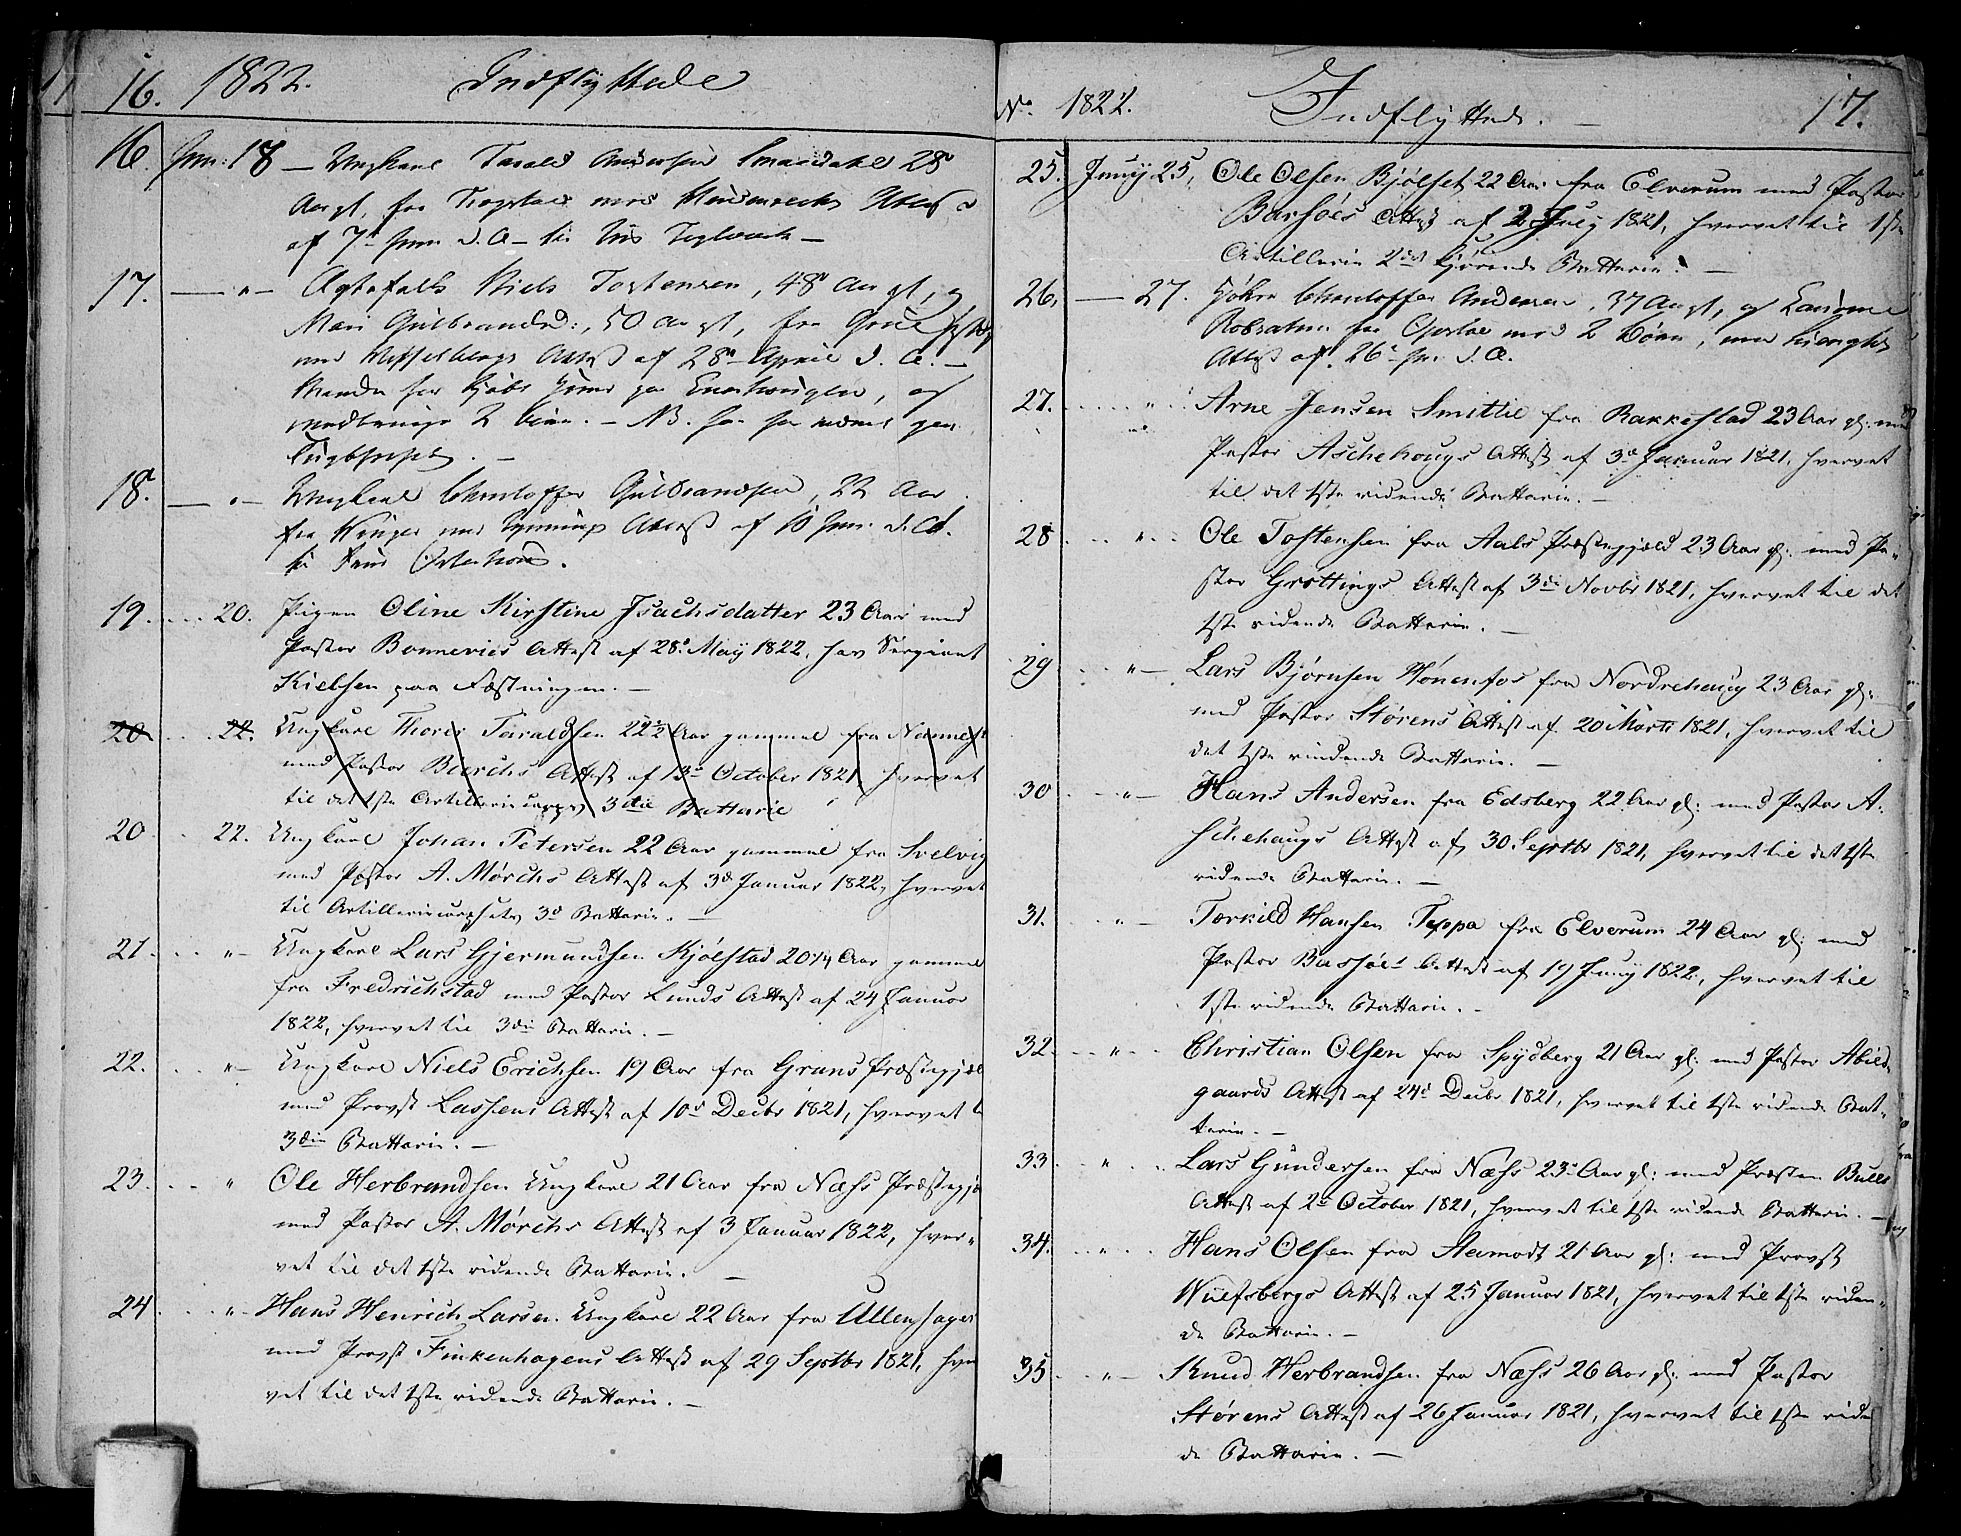 16. 1822. Indflyttede
16. Jun: 18 — Ungkarl Tarald Andersen Smaadahl 28
Aar gl, fra med Attest
af 7d Jun. d. A — til Teglverk —
17. — " — Ægtefolk Niels Tostensen, 48 Aar gl, og
Mari Gulbrandsd:, 50 Aar gl, fra Grue
med Attest af 28d April d. A. —
Manden har kjøbt paa Enerhougen, og
medbringe 2 Børn. — NB. har
18. — " — Ungkarl Christoffer Gulbrandsen, 22 Aar
fra Winger med Attest af 10 Jun. d. A.
til
19. . . . 20. Pigen Oline Kirstine Isachsdatter 23 Aar med
Pastor Bonnevies Attest af 28d May 1822, hos Sergiant
Kielsen paa Fæstningen. —
20 . . . 22. Ungkarl Thorer Taraldsen 22½ Aar gammel fra Nannest
med Pastor Bierchs Attest af 13d October 1821, hvervet
til det 1ste Artilleriecorps, 3die Batterie
20 . . 22. Ungkarl Johan Petersen 22 Aar gammel fra Svelvig
med Pastor A. Mørchs Attest af 3d Januar 1822, hvervet
til Artilleriecorpsets 3d Batterie. —
21. . . " — Ungkarl Lars Gjermundsen Kjølstad 20 1/4 Aar gammel
fra Fredrichstad med Pastor Lunds Attest af 24 Januar
1822, hvervet til 3die Batterie. —
22. . . " — Ungkarl Niels Erichsen 19 Aar fra Grans Præstegjæl
med Provst Lassens Attest af 10d Decbr 1821, hvervet t
3die Batterie. —
23. . . " Ole Herbrandsen Ungkarl 21 Aar fra Næss Præstegj
med Pastor A. Mørchs Attest af 3 Januar 1822, hver-
vet til det 1ste ridende Batterie. —
24 . . . " — Hans Henrich Larsen Ungkarl 22 Aar fra Ullensager
med Provst Finkenhagens Attest af 29 Septbr 1821, hver
vet til det 1ste ridende Batterie. —
No. 1822. Indflyttede. — 17.
25. Juny 25, Ole Olsen Bjølset, 22 Aar fra Elverum med Pastor
Barsøes Attest af 2 July 1821, hvervet til 1ste
Artillerie 2det kjørende Batterie. —
26. — 27. Christoffer Andersen, 37 Aar gl, og
fra med 2 Børn, med
Attest af 26d Jun. d. A.
27. . . . " . Arne Jensen Smittil fra Rakkestad 23 Aar gl: med
Pastor Aschehougs Attest af 3d Januar 1821, hvervet
til det 1ste ridende Batterie. —
28 . . " . . Ole Tostensen fra Aals Præstegjæld 23 Aar gl. med Pa-
stor Grøttings Attest af 3die Novbr 1821, hvervet til det
1ste ridende Batterie. —
29 . . " — Lars Bjørnsen Hønenfos fra Nordrehaug 23 Aar gl:
med Pastor Størens Attest af 20 Marts 1821, hvervet til
det 1ste rindende Batterie. —
30 . . " — Hans Andersen fra Edsberg 22 Aar gl: med Pastor A-
schehaugs Attest af 30 Septbr 1821, hvervet til det 1ste
ridende Batterie. —
31. . . " — Torkild Hansen Teppa fra Elverum 24 Aar gl: med
Pastor Bassøes Attest af 19 Juny 1822, hvervet til
1ste ridende Batterie. —
32. . . " . . Christian Olsen fra Spydberg 21 Aar gl: med Pastor Abild-
gaards Attest af 24d Decbr 1821, hvervet til 1ste ridende Bat-
terie. —
33 . . " . . Lars Gundersen fra Næss 23d Aar gl: med Præsten Bulls
Attest af 2d October 1821, hvervet til 1ste ridende Batterie. —
34. . . " . . Hans Olsen fra Aamodt 21 Aar gl: med Provst
Wulfsbergs Attest af 25 Januar 1821, hvervet til 1ste riden-
de Batterie. —
35 . . " — Knud Herbrandsen fra Næss 26 Aar gl: med Pastor
Størens Attest af 26 Januar 1821, hvervet til 1ste riden
de Batterie. —